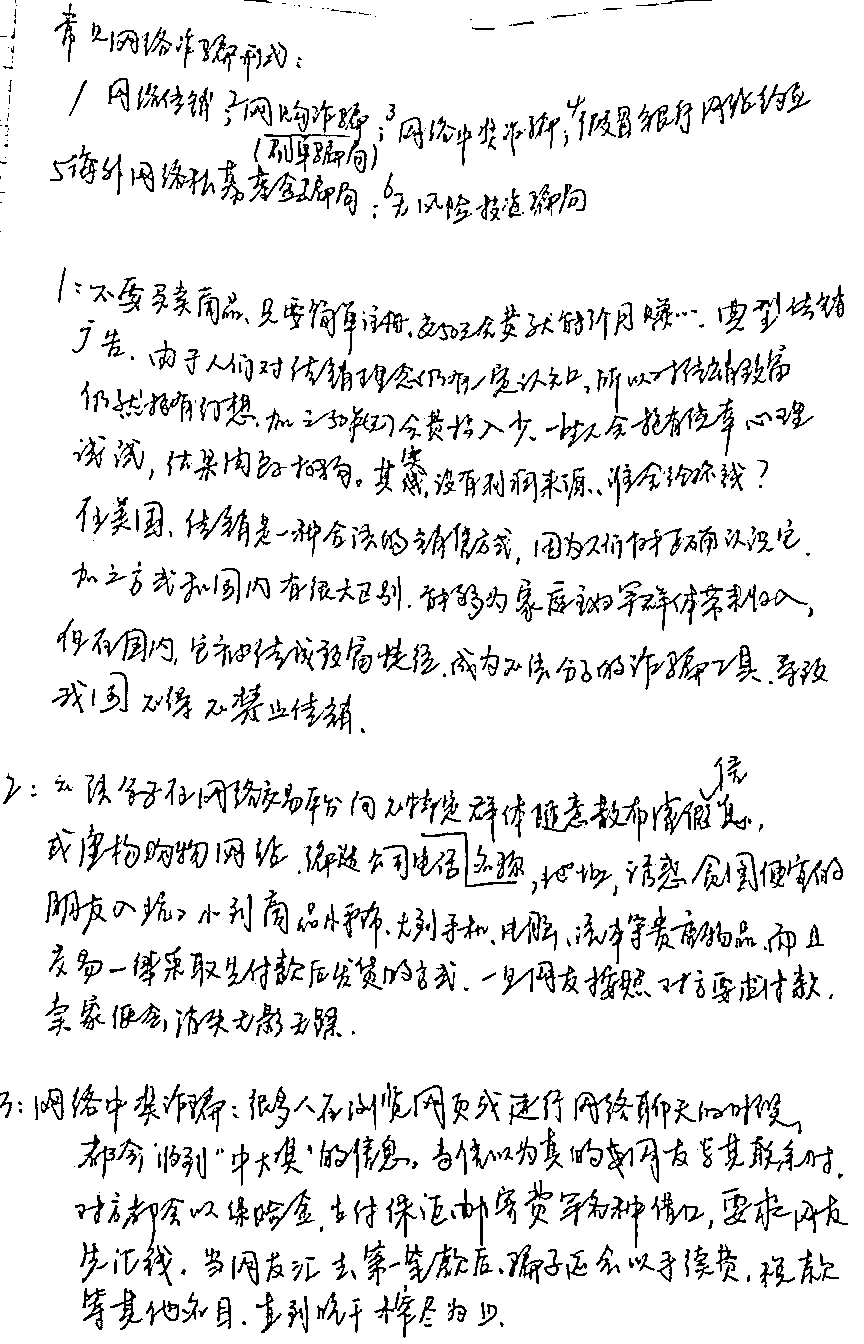 常见网络诈骗形式:
1 网络传销;2网购诈骗;3网络中奖诈骗;4假冒银行网站约定
(刷单骗局)
5海外网络私募基金骗局;6无风险投资骗局
1:不要买卖商品、只要简单注册、交50元会费就能月月赚…. 典型传销
广告. 由于人们对传销理念仍有一定认知,所以对传销致富
仍然抱有幻想. 加之50元的会费投入少、一些人会抱有侥幸心理
试试, 结果肉包子打狗。其实,没有利润来源、谁会给你钱?
在美国、传销是一种合法的销售方式, 因为人们能正确认识它.
加之方式和国内有很大区别. 能够为家庭主妇等群体带来收入,
但在国内, 它被传成致富捷径、成为不法分子的诈骗工具、导致
我国不得不禁止传销.
2: 不法分子在网络交易平台向不特定群体随意散布虚假信息,
或虚构购物网站、编造公司电话名称, 地址, 诱惑贪图便宜的
朋友入坑, 小到商品、大到手机、电脑、汽车等贵重物品、而且
交易一律采取先付款后发货的方式. 一旦网友按照对方要求付款.
卖家便会消失无影无踪.
3:网络中奖诈骗: 很多人在浏览网页或进行网络聊天的时候,
都会收到"中大奖"的信息。当信以为真的网友与其联系时.
对方都会以保险金、支付保证、邮寄费等各种借口, 要求网友
先汇钱. 当网友汇去第一笔款后、骗子还会以手续费、税款
等其他名目. 直到吃干榨尽为止.